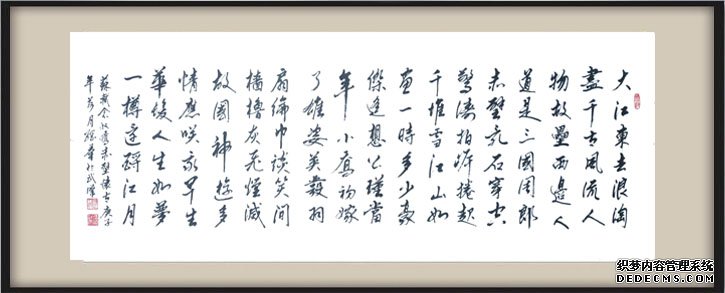 大江東去浪淘
盡千古風流人
物故壘西邊人
道是三國周郎
赤壁亂石穿空
驚濤拍岸捲起
千堆雪江山如
畫一時多少豪
傑遙想公瑾當
年小喬初嫁
了雄姿英發羽
扇綸巾談笑間
檣櫓灰飛煙滅
故國神遊多
情應笑我早生
華髮人生如夢
一樽還酹江月
蘇軾念奴嬌赤壁懷古庚子
年月華於武漢
织梦内容管理系统
DEDECMS.COM